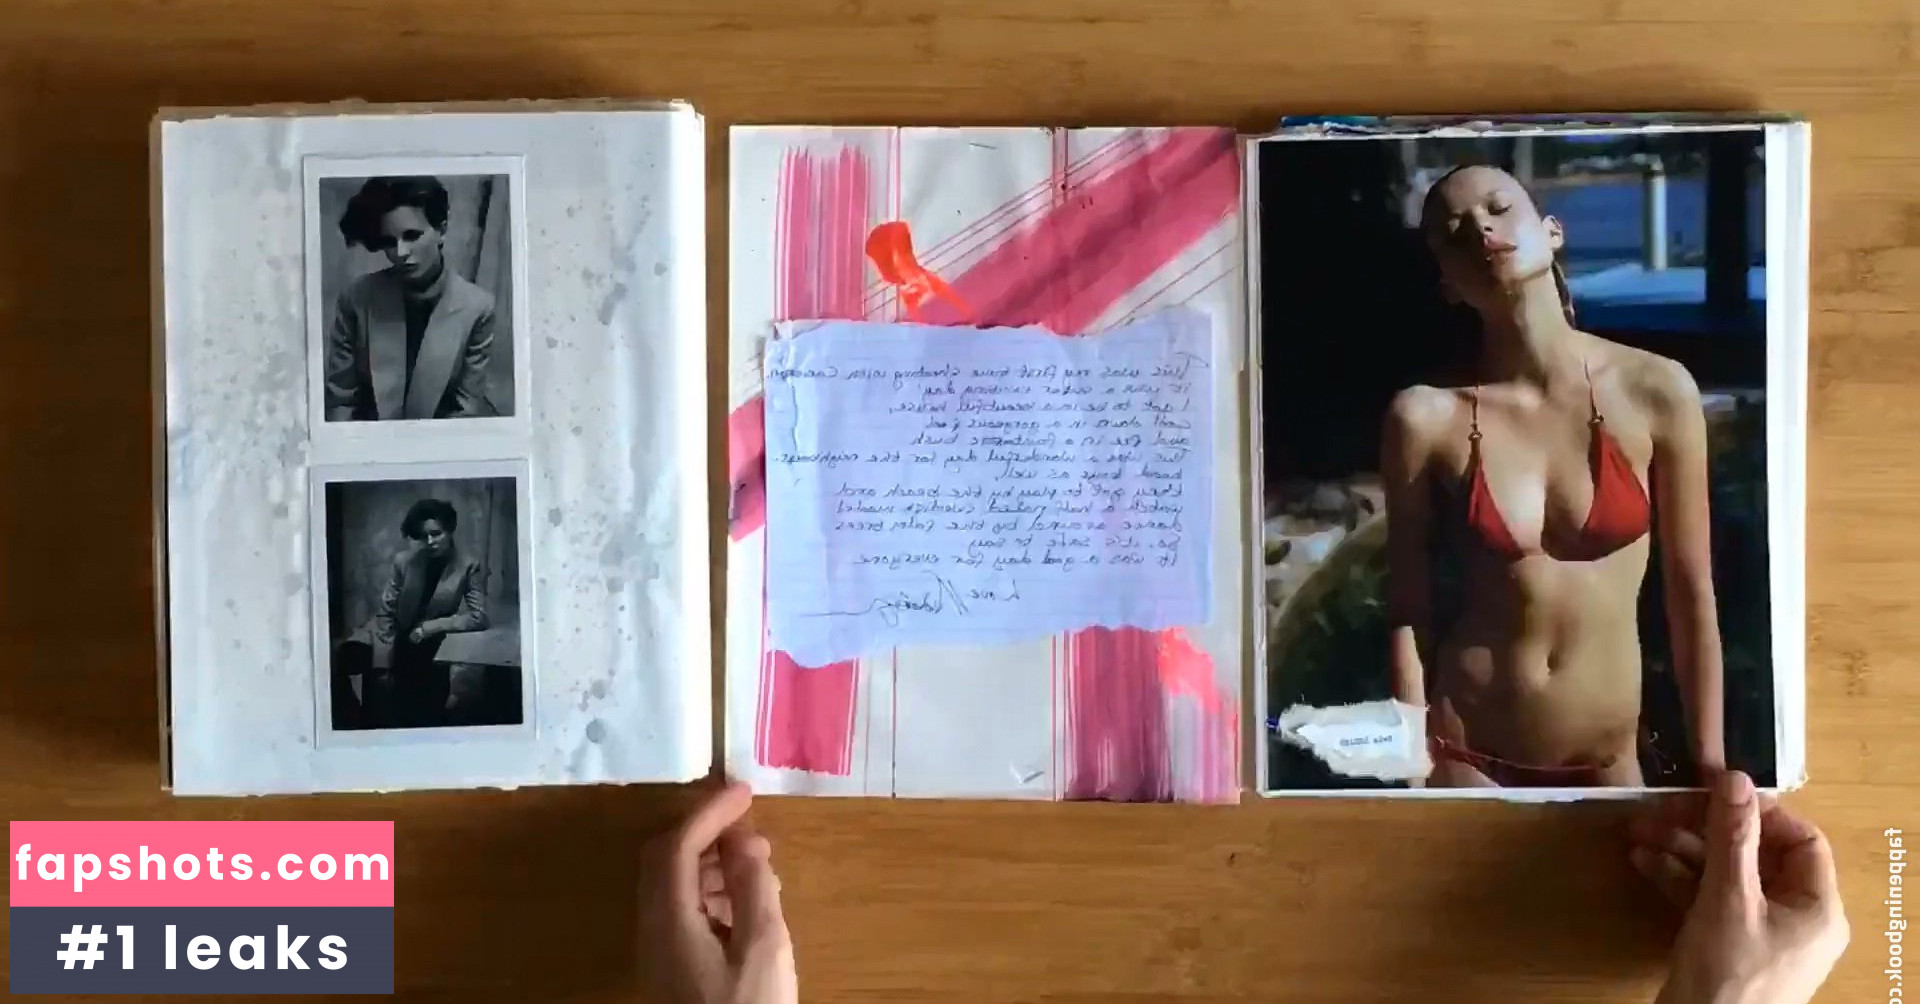 This was my first time shooting with Cameron.
it was a super exciting day!
I got to be in a beautiful house,
cool down in a gorgeous pool
and be in a fantastic bush
This was a wonderful day for the neighbours
beach boys as well,
they got to play by the beach and
watch a half naked swedish model
dance around by the palm trees
so, it's safe to say
it was a good day for everyone.
Love
fapshots.com
#1 leaks
fappeningbook.co